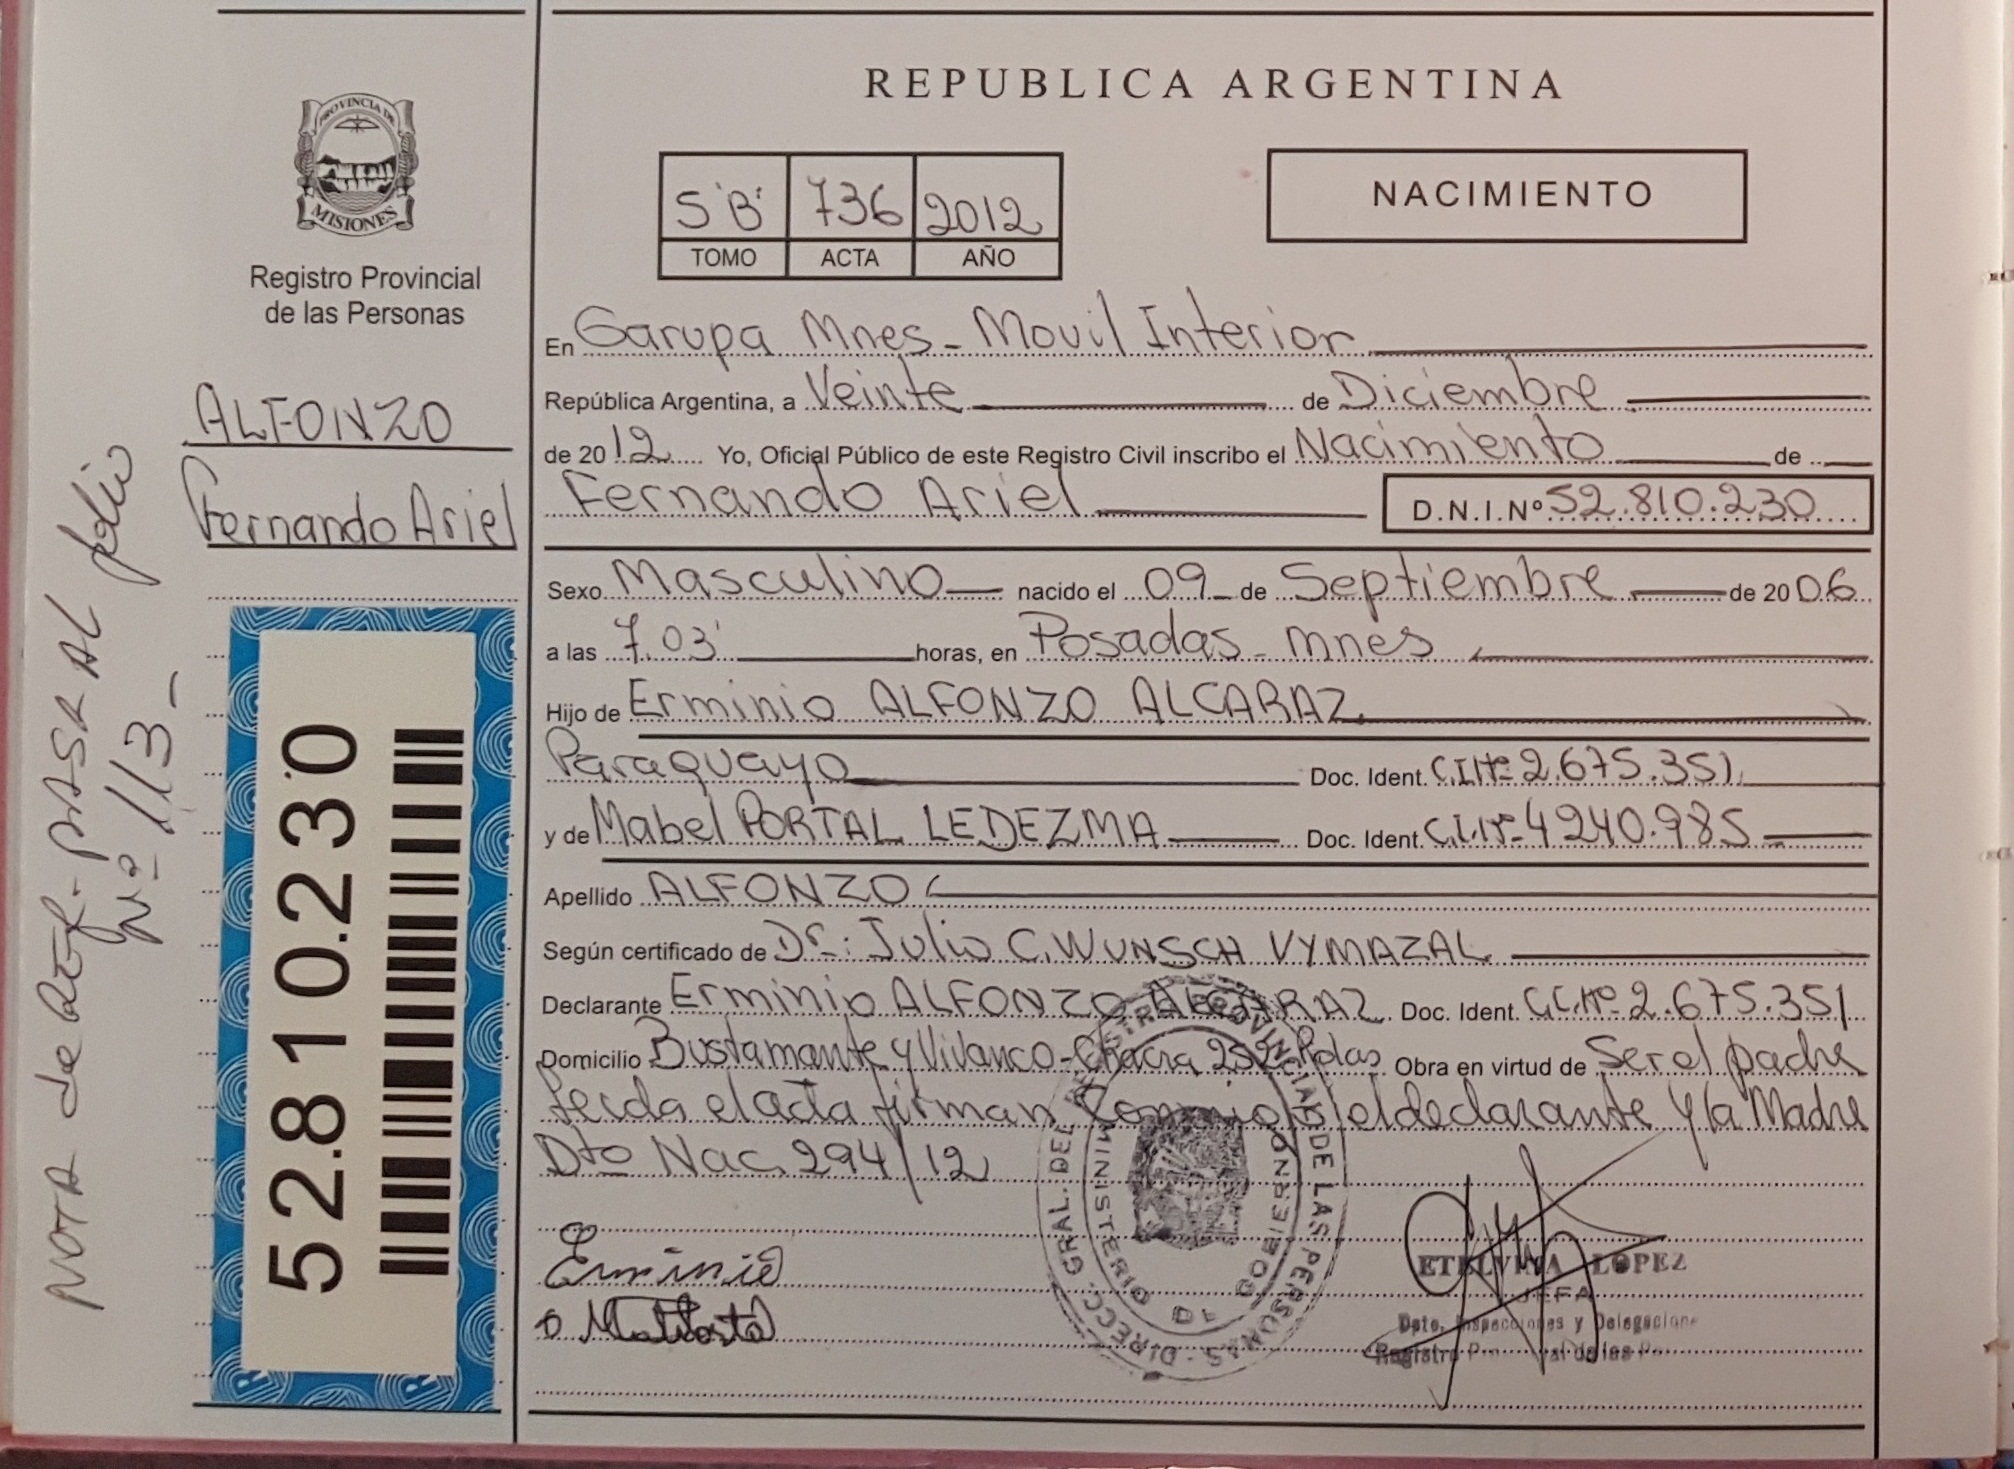 PROVINCIA DE
MISIONES
Registro Provincial
de las Personas
ALFONZO
Fernando Ariel
52.810.230
NOTA de REF.- PASA AL folio
Nº 113-
REPUBLICA ARGENTINA
5'B' 736 2012
TOMO ACTA AÑO
NACIMIENTO
En Garupa Mnes - Movil Interior
República Argentina, a Veinte de Diciembre
de 2012 Yo, Oficial Público de este Registro Civil inscribo el Nacimiento de
Fernando Ariel D.N.I.Nº 52.810.230
Sexo Masculino nacido el 09 de Septiembre de 2006
a las 7.03' horas, en Posadas - mnes
Hijo de Erminio ALFONZO ALCARAZ
Paraguayo Doc. Ident. C.I.Nº 2.675.351
y de Mabel PORTAL LEDEZMA Doc. Ident. C.I.Nº 4240.985
Apellido ALFONZO
Según certificado de Dr.: Julio C. WUNSCH VYMAZAL
Declarante Erminio ALFONZO ALCARAZ Doc. Ident. C.I.Nº 2.675.351
Domicilio Bustamante y Vivanco - Chacra 252 - Pdas Obra en virtud de Ser el padre
Leida el acta firman Conmigo el declarante y la Madre
Dto Nac. 294/12
Erminio
DIRECC. GRAL. DEL REGISTRO PROVINCIAL DE LAS PERSONAS
MINISTERIO DE GOBIERNO
ETELVINA LOPEZ
JEFA
Dpto. Inspecciones y Delegacione
Registro de las